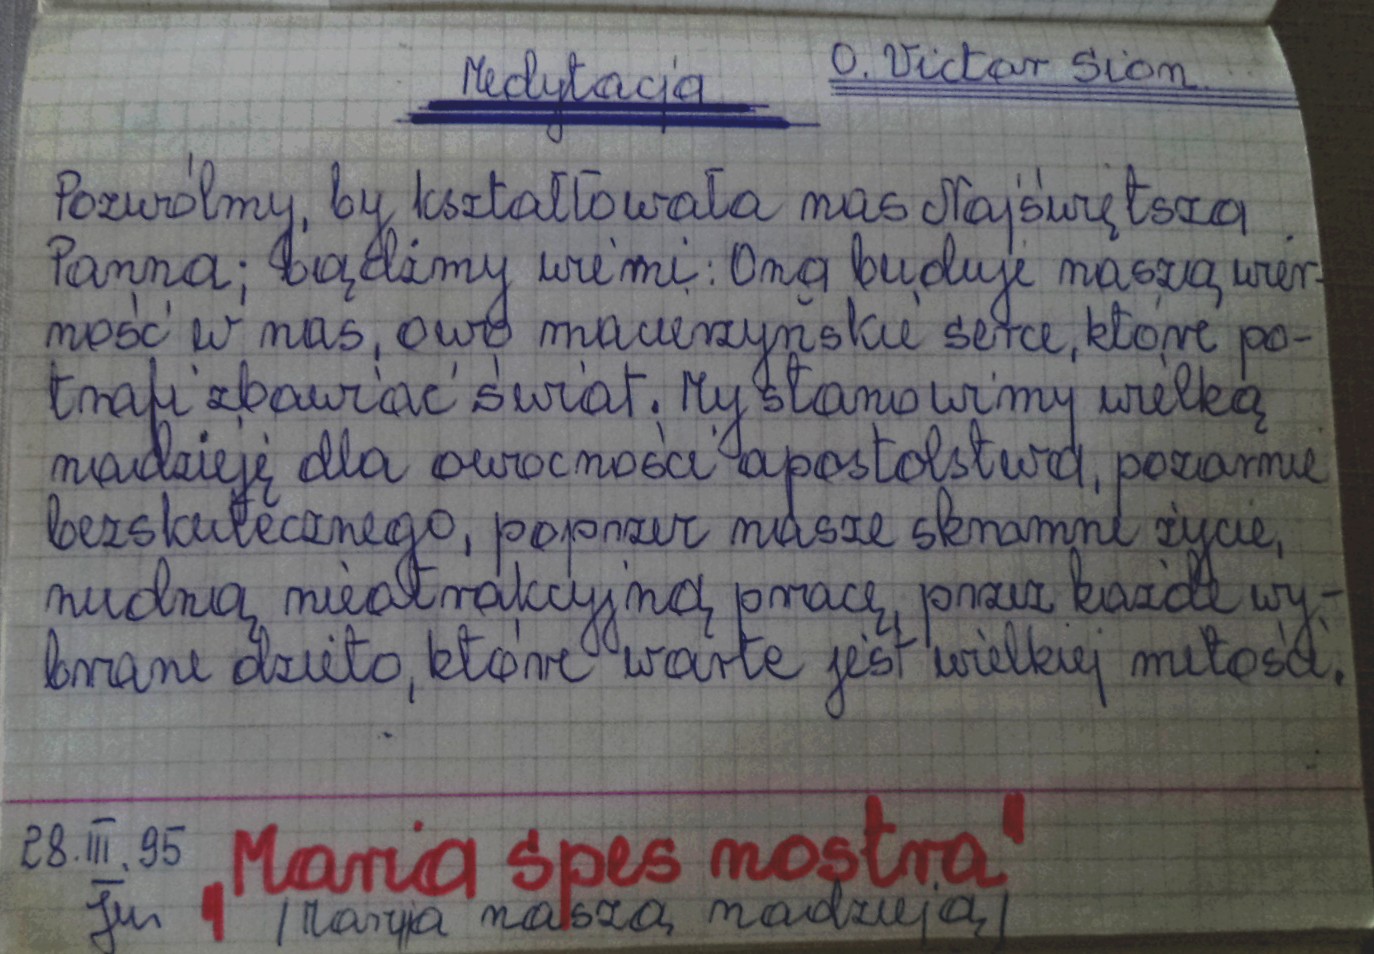 Medytacja O. Victor Sion
Pozwólmy, by kształtowała nas Najświętsza
Panna; bądźmy wierni: Ona buduje naszą wier-
ność w nas, owo macierzyńskie serce, które po-
trafi zbawiać świat. My stanowimy wielką
nadzieję dla owocności apostolstwa, pozornie
bezskutecznego, poprzez nasze skromne życie,
nudną nieatrakcyjną pracę, przez każde wy-
brane dzieło, które warte jest wielkiej miłości.
28.III.95 „Maria spes nostra"
/Maryja naszą nadzieją/